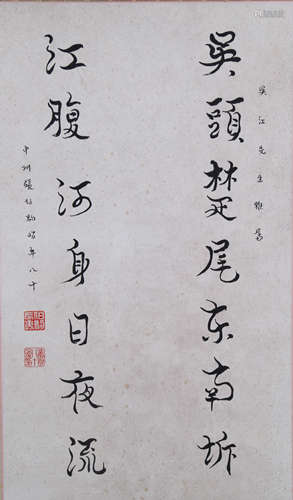 吴江先生雅属
吳頭楚尾东南坼
江腹河身日夜流
中州張伯駒時年八十